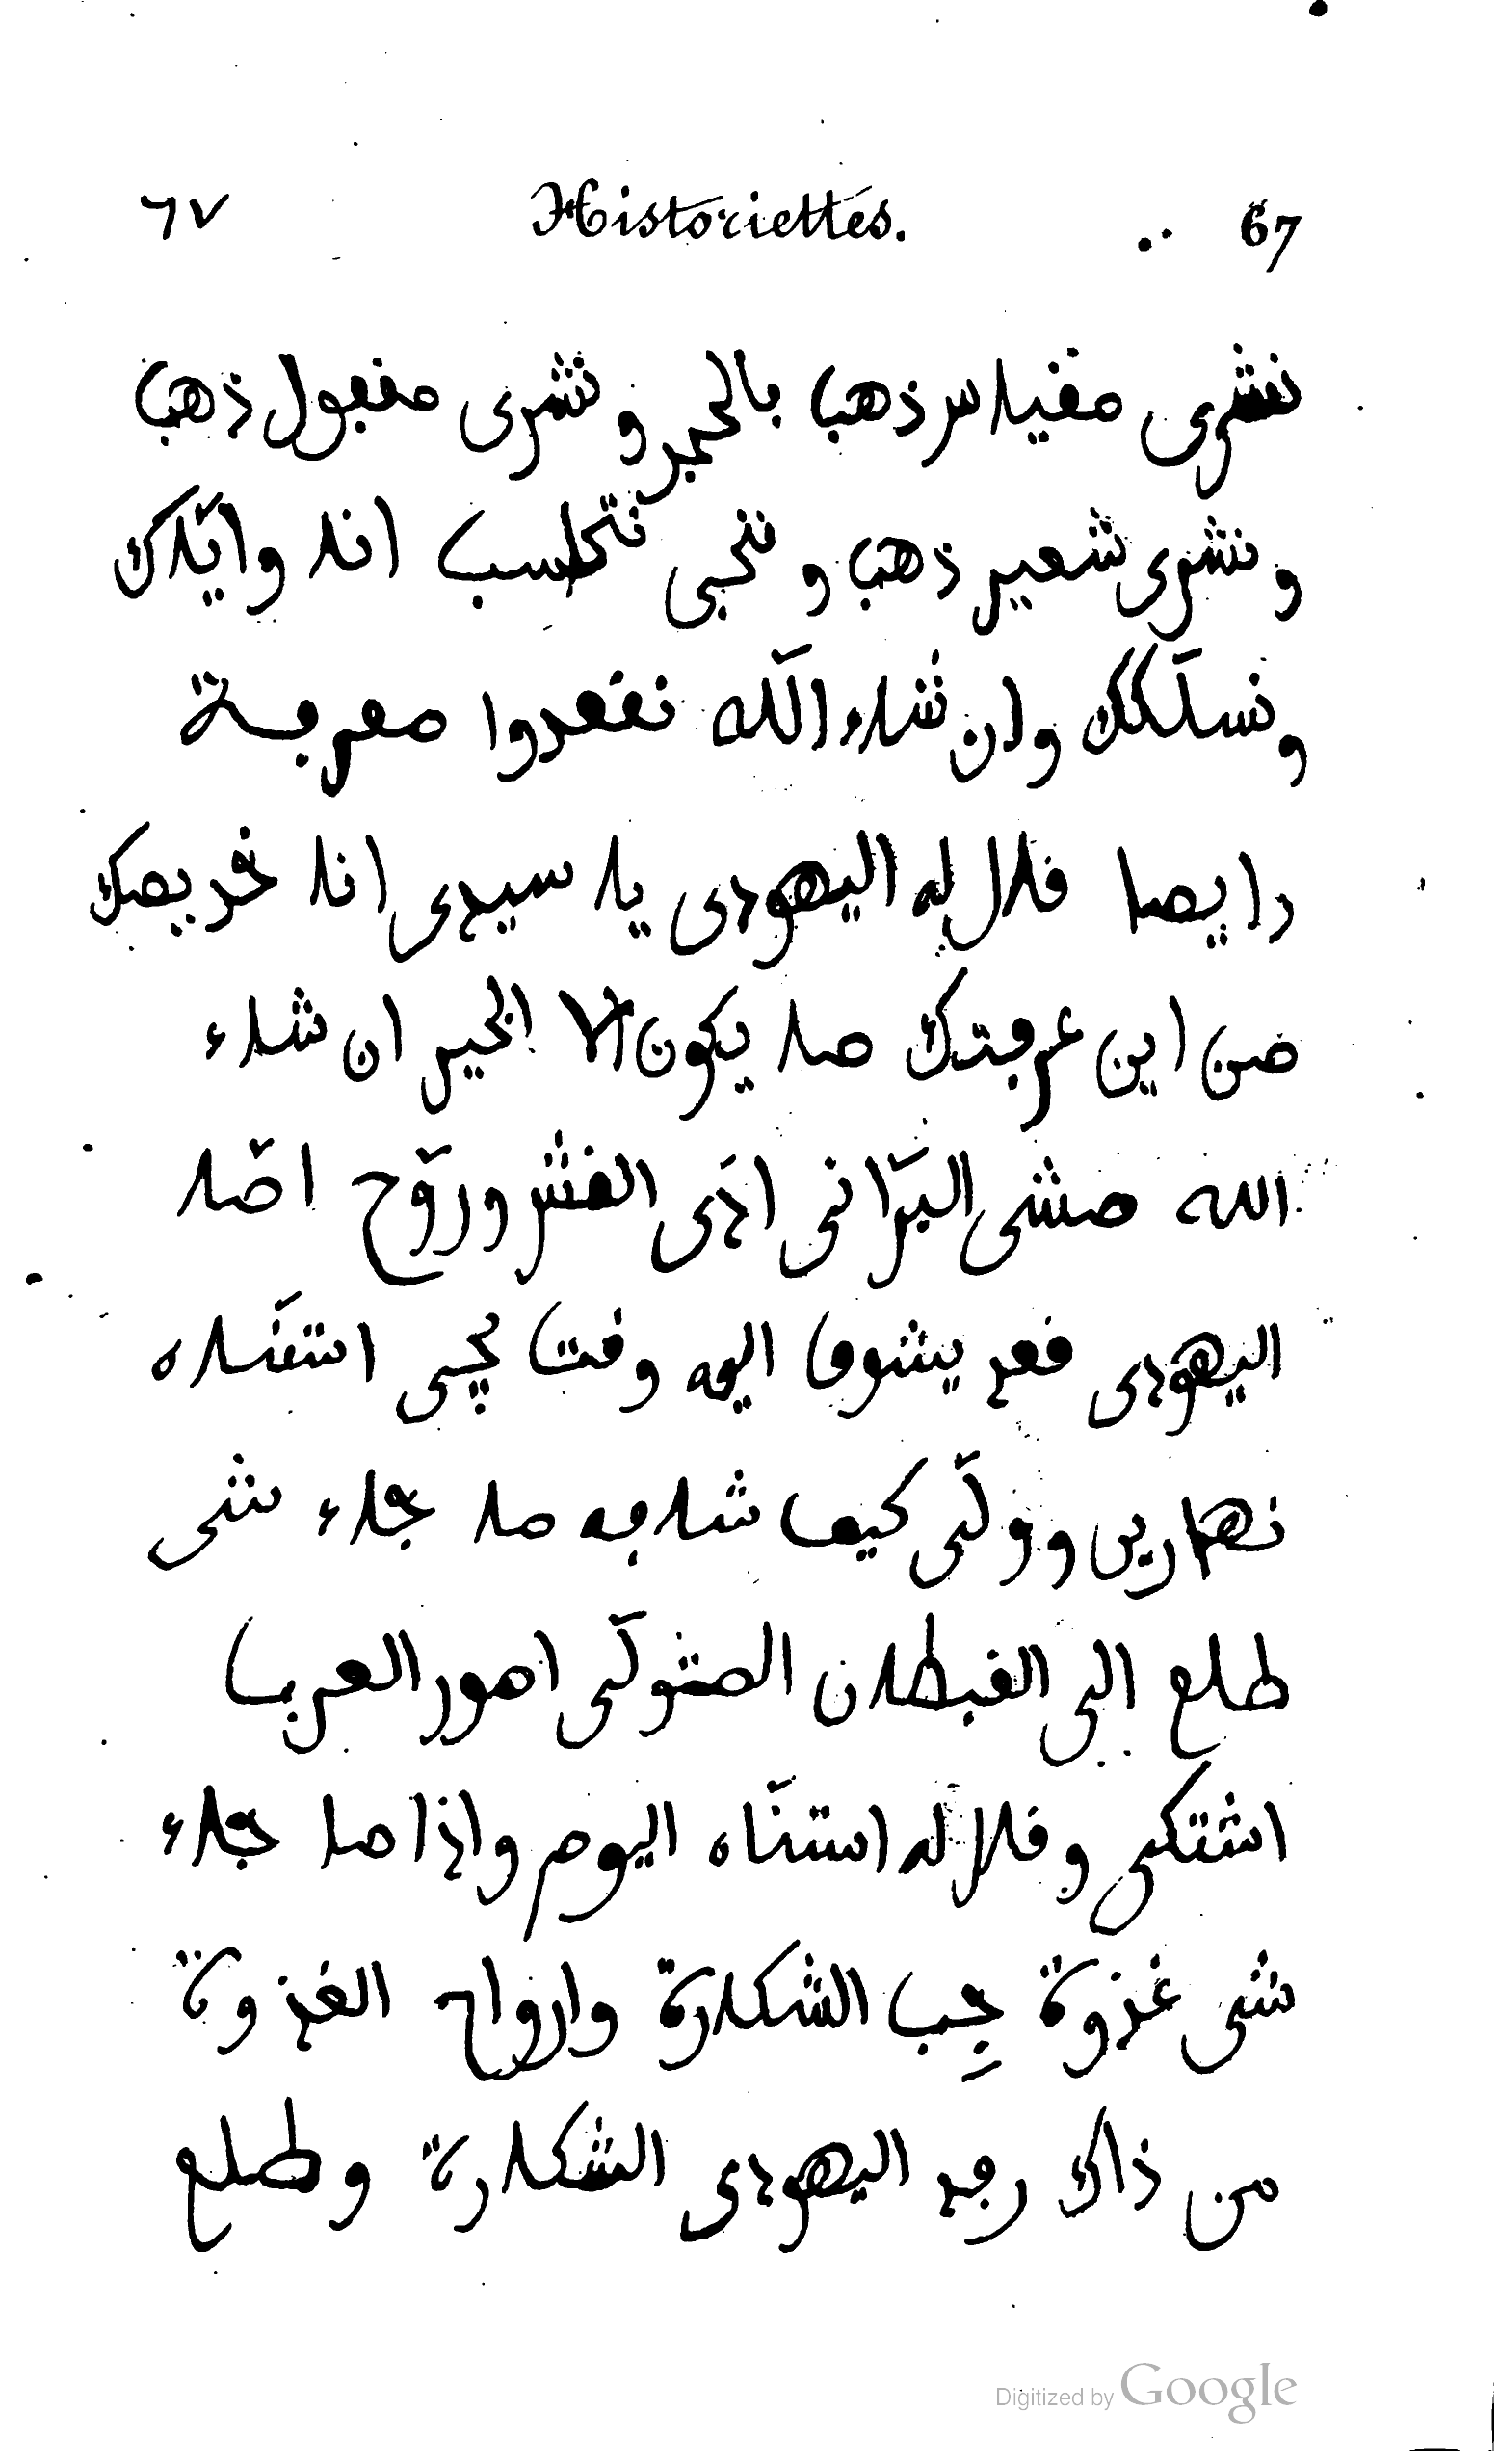 ٦٧ Historiettes. 67
نشرى مقياس ذهب بالحجر ونشرى مقبول ذهب
ونشرى شعير ذهب ونجى نتحاسب انا واياك
ونسلّكك وان شاء الله نقعدوا معرفة
دايما قال له اليهودى يا سيدى انا خريصك
من اين عرفتك ما يكون الا الخير ان شاء
الله مشى البرّانى ادّى القش وروّح امّا
اليهودى قعد يشوف اليه وقتا يجى استنّاه
نهارين وولّى كيف شافه ما جاء شى
طلع الى القبطان المتولّى امور العرب
اشتكى وقال له استنّاه اليوم واذا ما جاء
شى غدوة جِب الشكارة وارواح الغدوة
من ذاك رفد اليهودى الشكارة وطلع
Digitized by Google